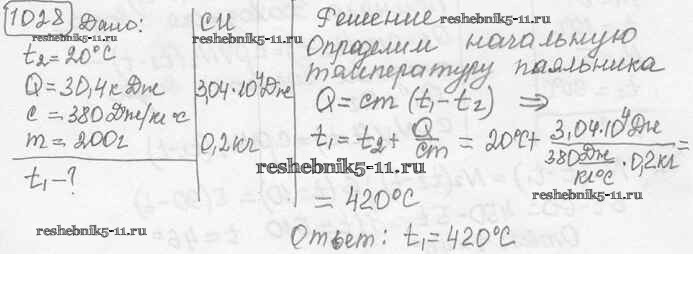 1028 Дано:
t₂=20°С
Q=30,4кДж
c=380Дж/кг°С
m=200г
t₁-?
СИ
3,04·10⁴Дж
0,2кг
Решение
Определим начальную
температуру паяльника
Q=cm(t₁-t₂) ⇒
t₁=t₂+Q/cm=20°С+3,04·10⁴Дж/(380Дж/кг°С·0,2кг)=
=420°С
Ответ: t₁=420°С
reshebnik5-11.ru
reshebnik5-11.ru
reshebnik5-11.ru
reshebnik5-11.ru
reshebnik5-11.ru